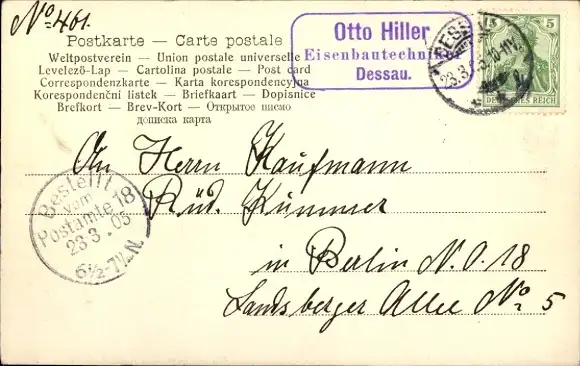 No 461.
Postkarte — Carte postale
Weltpostverein — Union postale universelle
Levelező-Lap — Cartolina postale — Post card
Correspondenzkarte — Karta korespondencyjna
Korespondenční listek — Briefkaart — Dopisnice
Brefkort — Brev-Kort — Открытое писмо
дописка карта
Otto Hiller
Eisenbautechniker
Dessau.
DESSAU
23.3.
5
DEUTSCHES REICH
An Herrn Kaufmann
Rud. Kummer
in Berlin N.O. 18
Landsberger Allee No 5
Bestellt
vom
Postamte 18
23.3.03
6½-7½N.